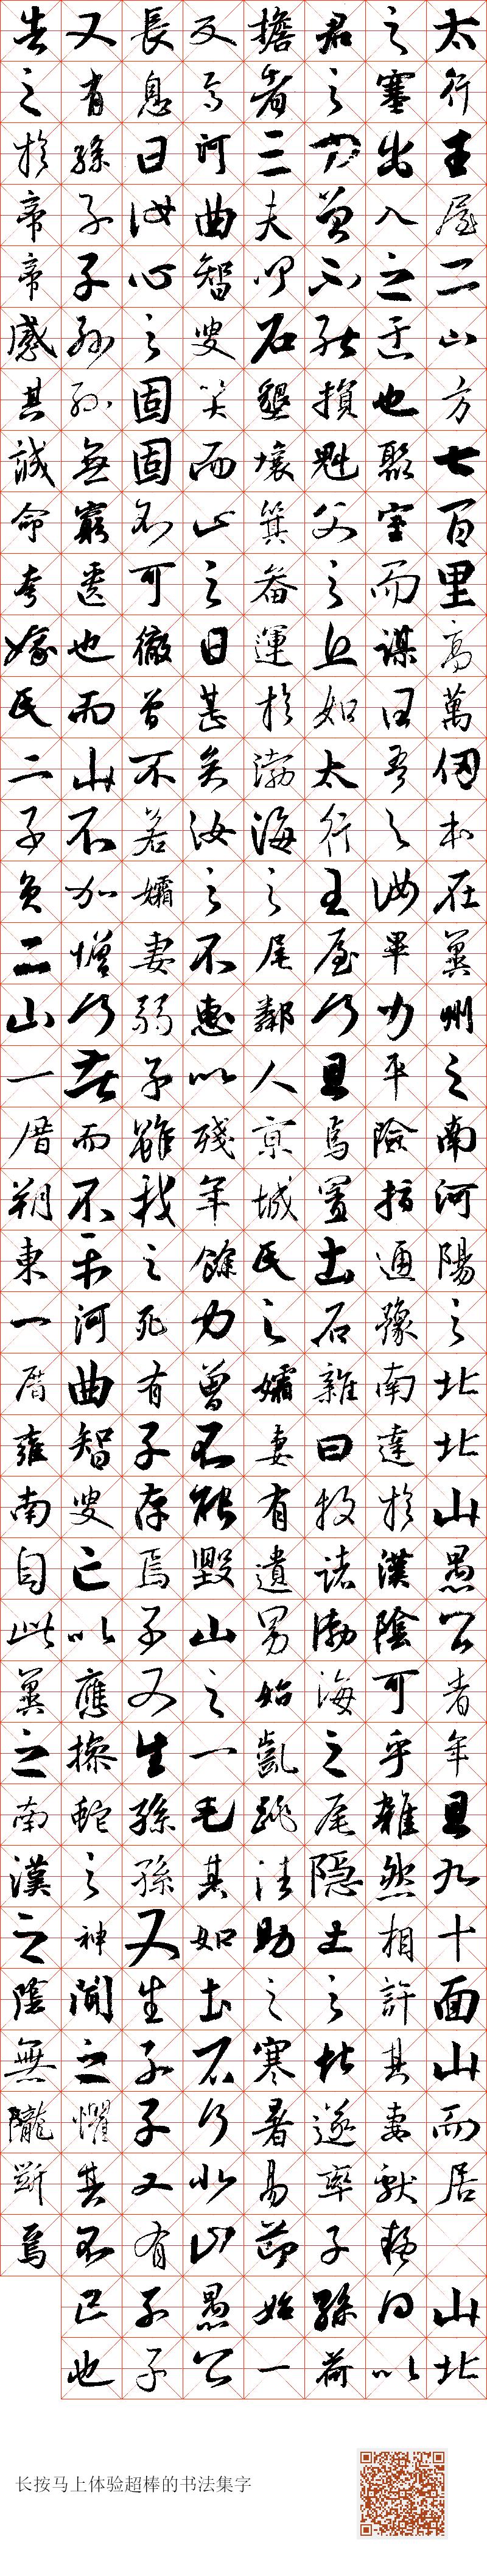 太行王屋二山方七百里高萬仞本在冀州之南河陽之北北山愚公者年且九十面山而居山北
之塞出入之迂也聚室而謀曰吾與汝畢力平險指通豫南達於漢陰可乎雜然相許其妻獻疑曰以
君之力曾不能損魁父之丘如太行王屋何且焉置土石雜曰投諸渤海之尾隱土之北遂率子孫荷
擔者三夫叩石墾壤箕畚運於渤海之尾鄰人京城氏之孀妻有遺男始齔跳往助之寒暑易節始一
反焉河曲智叟笑而止之曰甚矣汝之不惠以殘年餘力曾不能毀山之一毛其如土石何北山愚公
長息曰汝心之固固不可徹曾不若孀妻弱子雖我之死有子存焉子又生孫孫又生子子又有子子
又有孫子子孫孫無窮匱也而山不加增何苦而不平河曲智叟亡以應操蛇之神聞之懼其不已也
告之於帝帝感其誠命夸娥氏二子負二山一厝朔東一厝雍南自此冀之南漢之陰無隴斷焉
长按马上体验超棒的书法集字